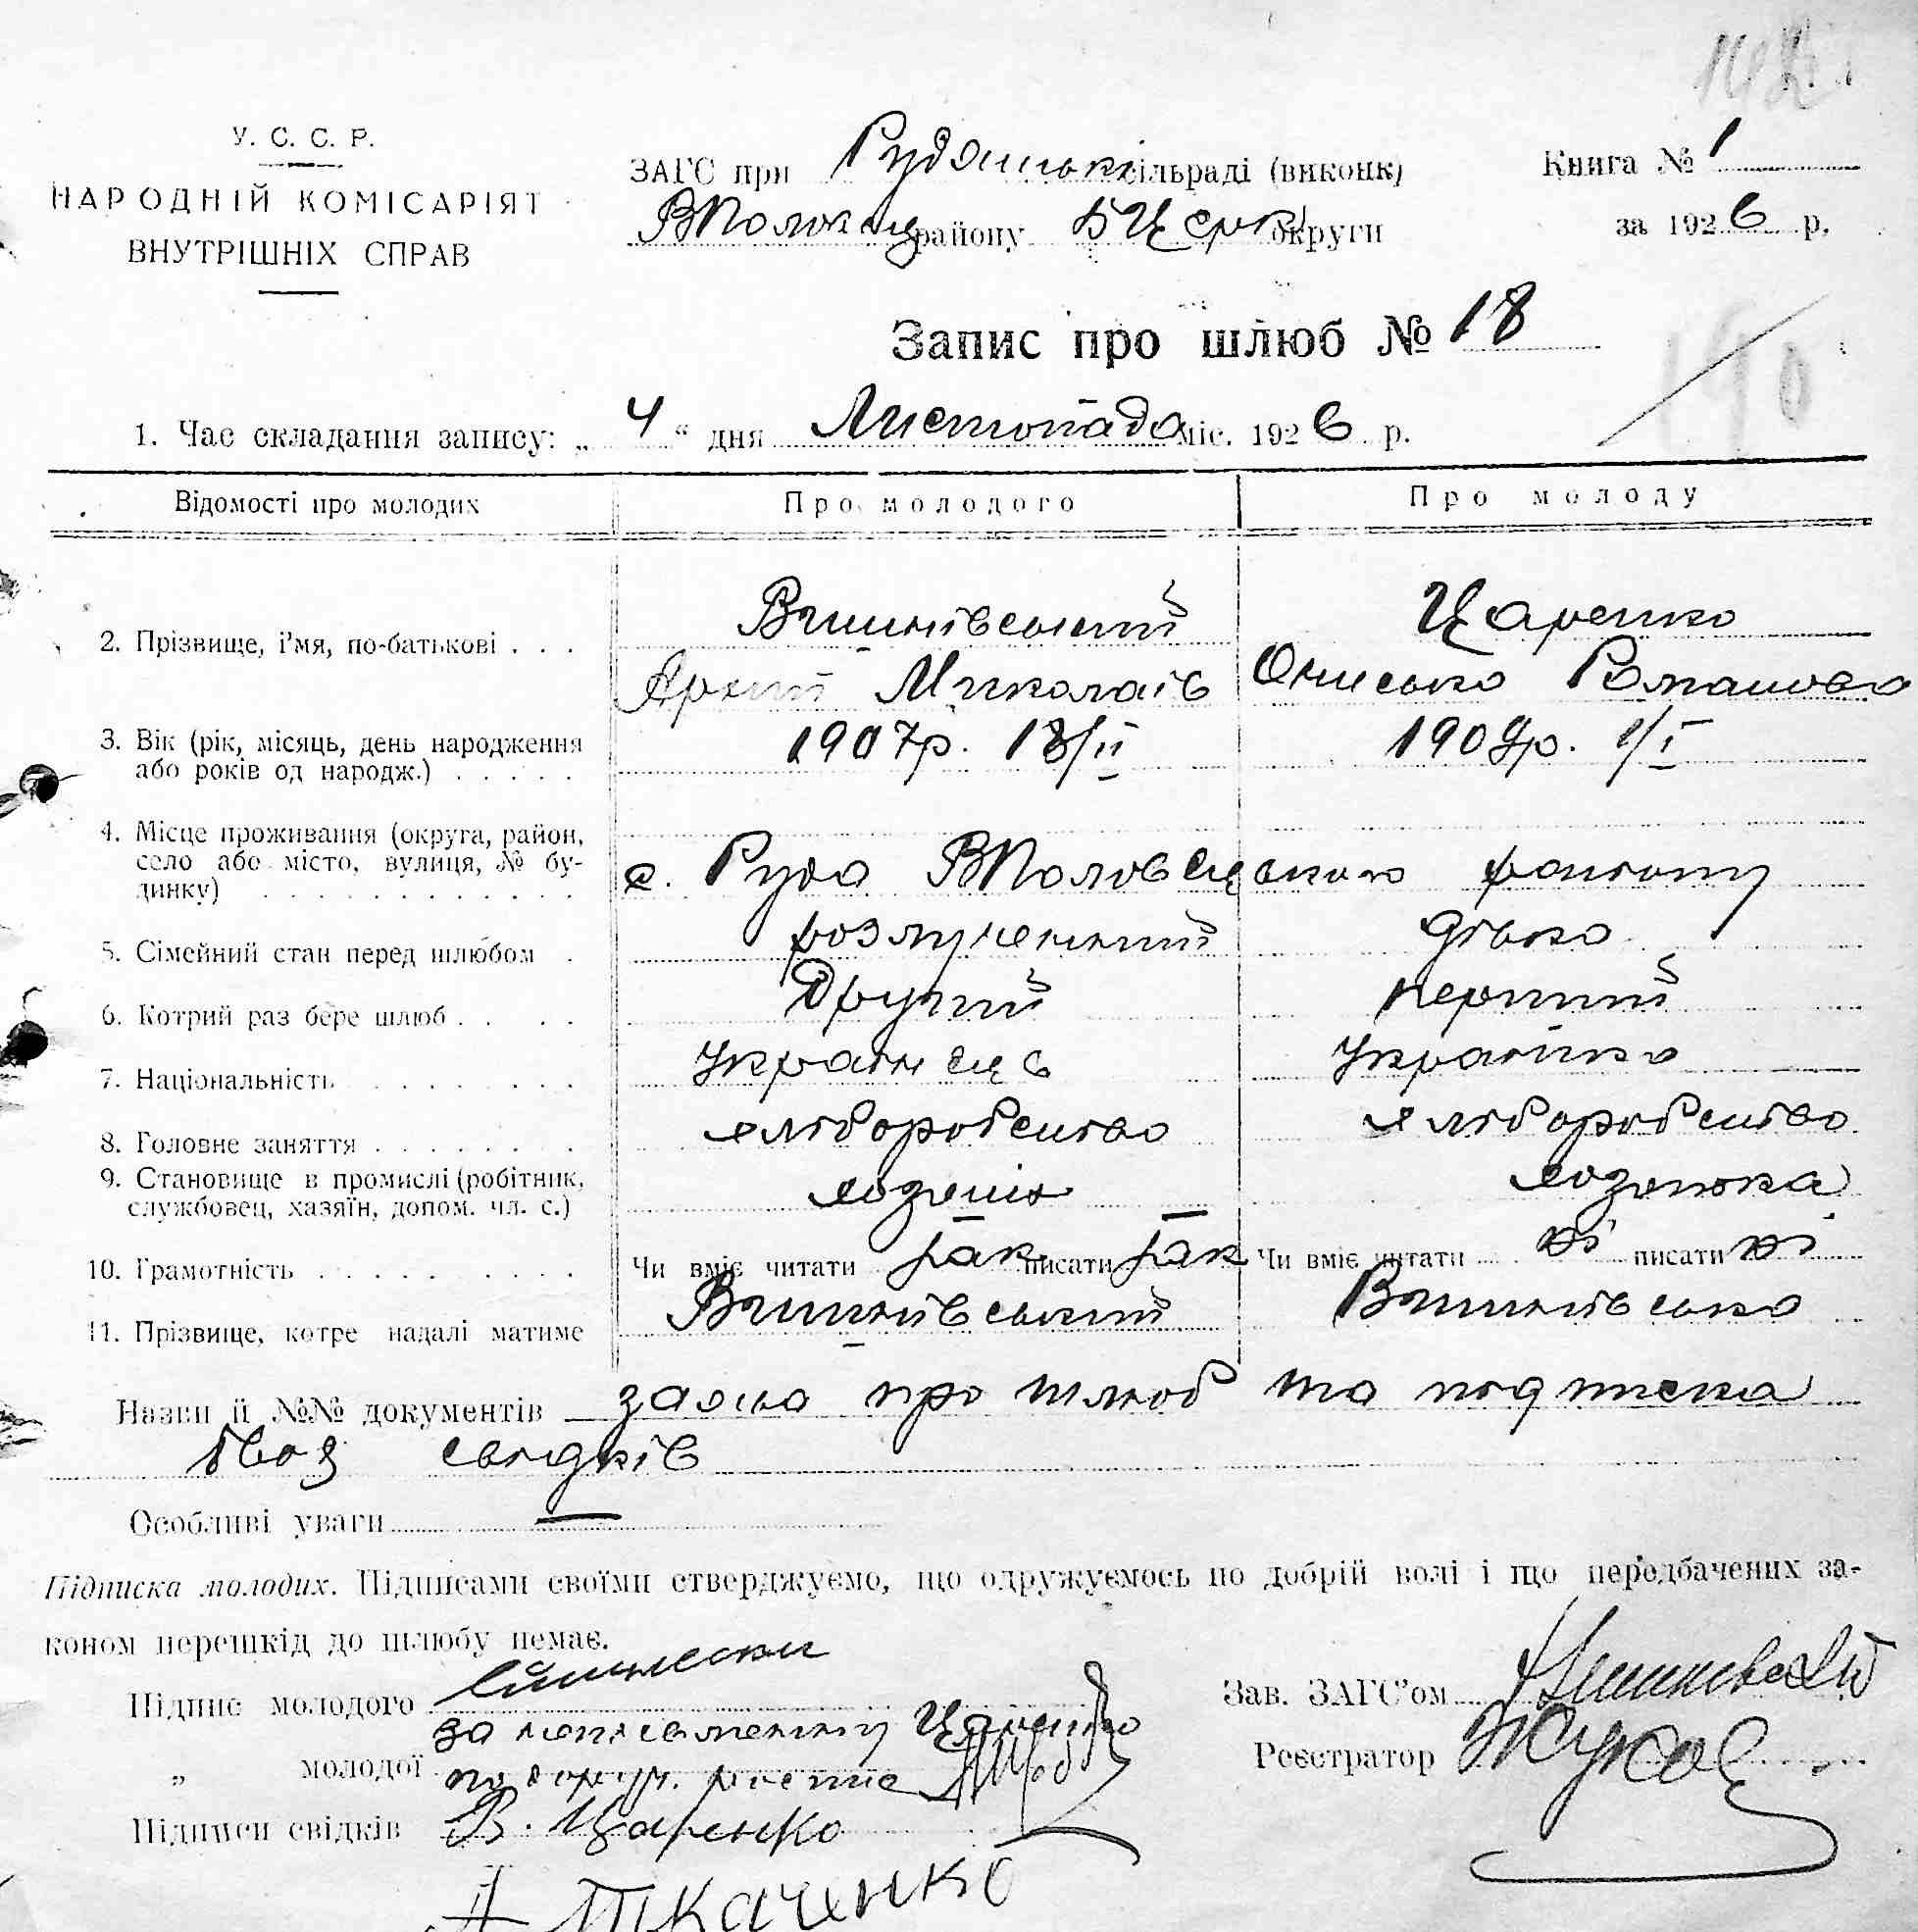 У. С. С. Р.
НАРОДНІЙ КОМІСАРІЯТ
ВНУТРІШНІХ СПРАВ
ЗАГС при Рудянські сільраді (виконк)
ВПоловец району БЦерк округи
Книга № 1
за 1926 р.
Запис про шлюб № 18
1. Час складання запису: „ 4 “ дня Листопада міс. 1926 р.
Відомості про молодих Про молодого Про молоду
2. Прізвище, і’мя, по-батькові . . . Вишнівський Царенко
Миколаїв Ониська Романова
3. Вік (рік, місяць, день народження 1907р. 18/II 1908р. 1/I
або років од народж.) . . . . .
4. Місце проживання (округа, район,
село або місто, вулиця, № бу- с. Руда ВПоловецького району
динку) . . . . . . . . . . . .
5. Сімейний стан перед шлюбом . розлученний дівка
6. Котрий раз бере шлюб . . . . Другий перший
7. Національність . . . . . . . . Українець Українка
8. Головне заняття . . . . . . . . хліборобство хліборобство
9. Становище в промислі (робітник,
службовец, хазяїн, допом. чл. с.) хозяїн хозяюка
10. Грамотність . . . . . . . . . Чи вміє читати так писати так Чи вміє читати ні писати ні
11. Прізвище, котре надалі матиме Вишнівський Вишнівська
Назви й №№ документів заява про шлюб та подписка
двох свідків
Особливі уваги —
Підписка молодих. Підписами своїми стверджуємо, що одружуємось по добрій волі і що передбачених за-
коном перешкід до шлюбу немає.
Підпис молодого
за неписьменну Царенко
„ молодої по доруч. росписа
Підписи свідків В. Царенко
А Ткаченко
Зав. ЗАГС’ом
Реєстратор Жуков